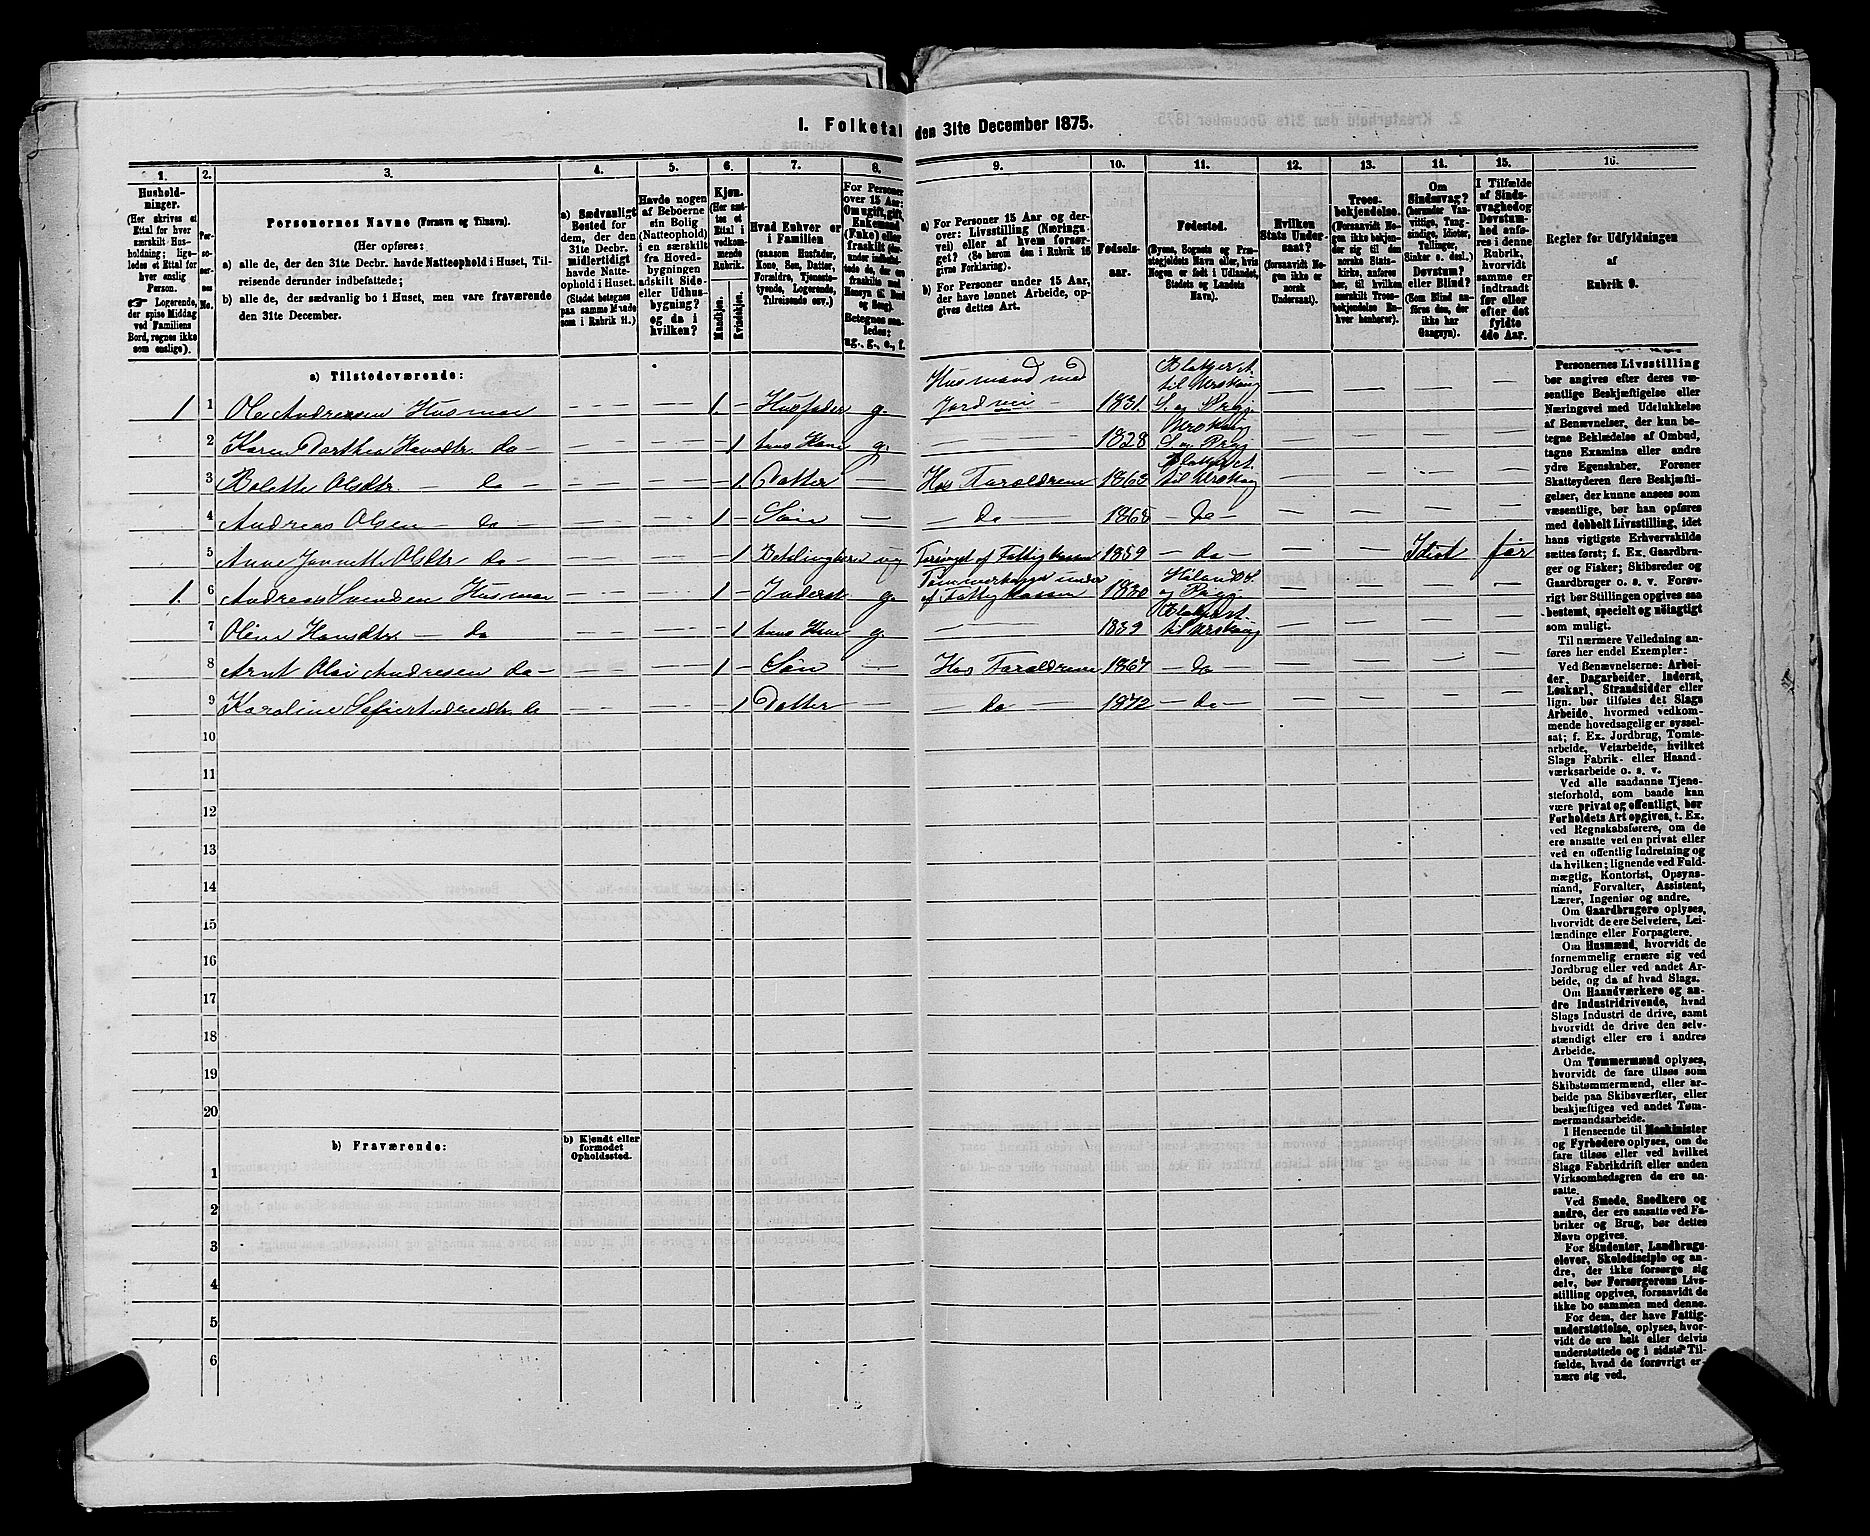 I. Folketal den 31te December 1875.
1. 2. 3. 4. 5. 6. 7. 8. 9. 10. 11. 12. 13. 14. 15. 16.
Hushold-
ninger.
(Her skrives et
Ettal for hver
særskilt Hus-
holdning; lige-
ledes et Ettal for
hver enslig
Person.
☞ Logerende,
der spise Middag
ved Familiens
Bord, regnes ikke
som enslige).
Per-
soner-
nes
No.
Personernes Navne (Fornavn og Tilnavn).
(Her opføres:
a) alle de, der den 31te Decbr. havde Natteophold i Huset, Til-
reisende derunder indbefattede;
b) alle de, der sædvanlig bo i Huset, men vare fraværende
den 31te December.
a) Sædvanligt
Bosted for
dem, der den
31te Decbr.
midlertidigt
havde Natte-
ophold i Huset.
(Stedet betegnes
paa samme Maade
som i Rubrik 11.)
Havde nogen
af Beboerne
sin Bolig
(Natteophold)
i en særskilt
fra Hoved-
bygningen
adskilt Side-
eller Udhus-
bygning?
og da i
hvilken?
Kjøn.
(Her sæt-
tes et
Ettal i
vedkom-
mende
Rubrik.
Mandkjøn.
Kvindekjøn.
Hvad Enhver er
i Familien
(saasom Husfader,
Kone, Søn, Datter,
Forældre, Tjeneste-
tyende, Logerende,
Tilreisende osv.)
For Personer
over 15 Aar:
Om ugift, gift,
Enkemand
(Enke) eller
fraskilt
Betegnes saa-
ledes:
ug., g., e., f.
a) For Personer 15 Aar og der-
over: Livsstilling (Nærings-
vei) eller af hvem forsør-
get? (Se herom den i Rubrik 16
givne Forklaring).
b) For Personer under 15 Aar,
der have lønnet Arbeide, op-
gives dettes Art.
Fødsels-
aar.
Fødested.
(Byens, Sognets og Præ-
stegjeldets Navn eller, hvis
Nogen er født i Udlandet,
Stedets og Landets
Navn).
Hvilken
Stats Under-
saat?
(forsaavidt No-
gen ikke er
norsk
Undersaat).
Troes-
bekjendelse.
(Forsaavidt No-
gen ikke bekjen-
der sig til den
norske Stats-
kirke, anføres
her, til hvilken
særskilt Troes-
bekjendelse En-
hver henhører).
Om
Sindssvag?
(herunder Van-
vittige, Tung-
sindige, Idioter,
Tullinger,
Sinker o. desl.)
Døvstum?
eller Blind?
(Som Blind an-
føres den, der
ikke har
Gangsyn).
I Tilfælde
af Sinds-
svaghed og
Døvstum-
hed anføres
i denne
Rubrik,
hvorvidt
samme er
indtraadt
før eller
efter det
fyldte
4de Aar.
Regler for Udfyldningen
af
Rubrik 9.
a) Tilstedeværende:
1. 1 Ole Andresen Husmoe — — 1. — Husfader g. Husmand med Jordvei — 1831. Blakjer A. til Urskoug S. og Præg. — — — —
2 Karen Dorthea Hansdtr. do — — — 1 hans Kone g. — 1828 Urskoug S. og Præg. — — — —
3 Bolette Olsdtr. — do — — — 1. Datter — Hos Forældrene 1863 Blakjer A. til Urskoug — — — —
4 Andreas Olsen — do — — — 1 — Søn — — do — 1868 — do — — — — —
5 Anne Jannette Olsdtr. do — — — 1 ug Forsørget af Fattigkassen 1859 — do — — — Idiot før
1. 6 Andreas Svendsen Husmoe — — 1 — Inderst g. under af Fattigkassen 1830 Høland S. og Præg. — — — —
7 Oline Hansdtr. — do — — — 1 hans Kone g. — 1839 Blakjer A. til Urskoug — — — —
8 Arnt Olai Andresen do — — — 1 — Søn — Hos Forældrene 1867 — do — — — —
9 Karoline Sofie Andresdtr. do — — — 1 Datter — — do — 1872 — do — — — — —
10
11
12
13
14
15
16
17
18
19
20
b) Fraværende:
b) Kjendt eller
formodet
Opholdssted.
1
2
3
4
5
6
Personernes Livsstilling
bør angives efter deres væ-
sentlige Beskjæftigelse eller
Næringsvei med Udelukkelse
af Benævnelser, der kun be-
tegne Beklædelse af Ombud,
tagne Examina eller andre
ydre Egenskaber. Forener
Skatteyderen flere Beskjæfti-
gelser, der kunne ansees som
væsentlige, bør han opføres
med dobbelt Livsstilling, idet
hans vigtigste Erhvervskilde
sættes først; f. Ex. Gaardbru-
ger og Fisker; Skibsreder og
Gaardbruger o. s. v. Forøv-
rigt bør Stillingen opgives saa
bestemt, specielt og nøiagtigt
som muligt.
Til nærmere Veiledning an-
føres her endel Exempler:
Ved Benævnelserne: Arbei-
der, Dagarbeider, Inderst,
Løskarl, Strandsidder eller
lign. bør tilføies det Slags
Arbeide, hvormed vedkom-
mende hovedsagelig er syssel-
sat; f. Ex. Jordbrug, Tomte-
arbeide, Veiarbeide, hvilket
Slags Fabrik- eller Haand-
værksarbeide o. s. v.
Ved alle saadanne Tjene-
steforhold, som baade kan
være privat og offentligt, bør
Forholdets Art opgives, t. Ex.
ved Regnskabsførere, om de
ere ansatte ved en privat eller
ved en offentlig Indretning og
da hvilken; lignende ved Fuld-
mægtig, Kontorist, Opsyns-
mand, Forvalter, Assistent,
Lærer, Ingeniør og andre.
Om Gaardbrugere oplyses,
hvorvidt de ere Selveiere, Lei-
lændinge eller Forpagtere.
Om Husmænd, hvorvidt de
fornemmelig ernære sig ved
Jordbrug eller ved andet Ar-
beide, og da af hvad Slags.
Om Haandværkere og an-
dre Industridrivende, hvad
Slags Industri de drive, samt
hvorvidt de drive den selv-
stændigt eller ere i andres
Arbeide.
Om Tømmermænd oplyses,
hvorvidt de fare tilsøs som
Skibstømmermænd, eller ar-
beide paa Skibsværfter, eller
beskjæftiges ved andet Tøm-
mermandsarbeide.
I Henseende til Maskinister
og Fyrbødere oplyses, om de
fare tilsøs eller ved hvilket
Slags Fabrikdrift eller anden
Virksomhedsgren de ere an-
satte.
Ved Smede, Snedkere og
andre, der ere ansatte ved Fa-
briker og Brug, bør dettes
Navn opgives.
For Studenter, Landbrugs-
elever, Skoledisciple og an-
dre, der ikke forsørge sig
selv, bør Forsørgerens Livs-
stilling opgives, forsaavidt de
ikke bo sammen med denne.
For dem, der have Fattig-
understøttelse, oplyses, hvor-
vidt de ere helt eller delvis
understøttede og i sidste Til-
fælde, hvad de forøvrigt er-
nære sig ved.